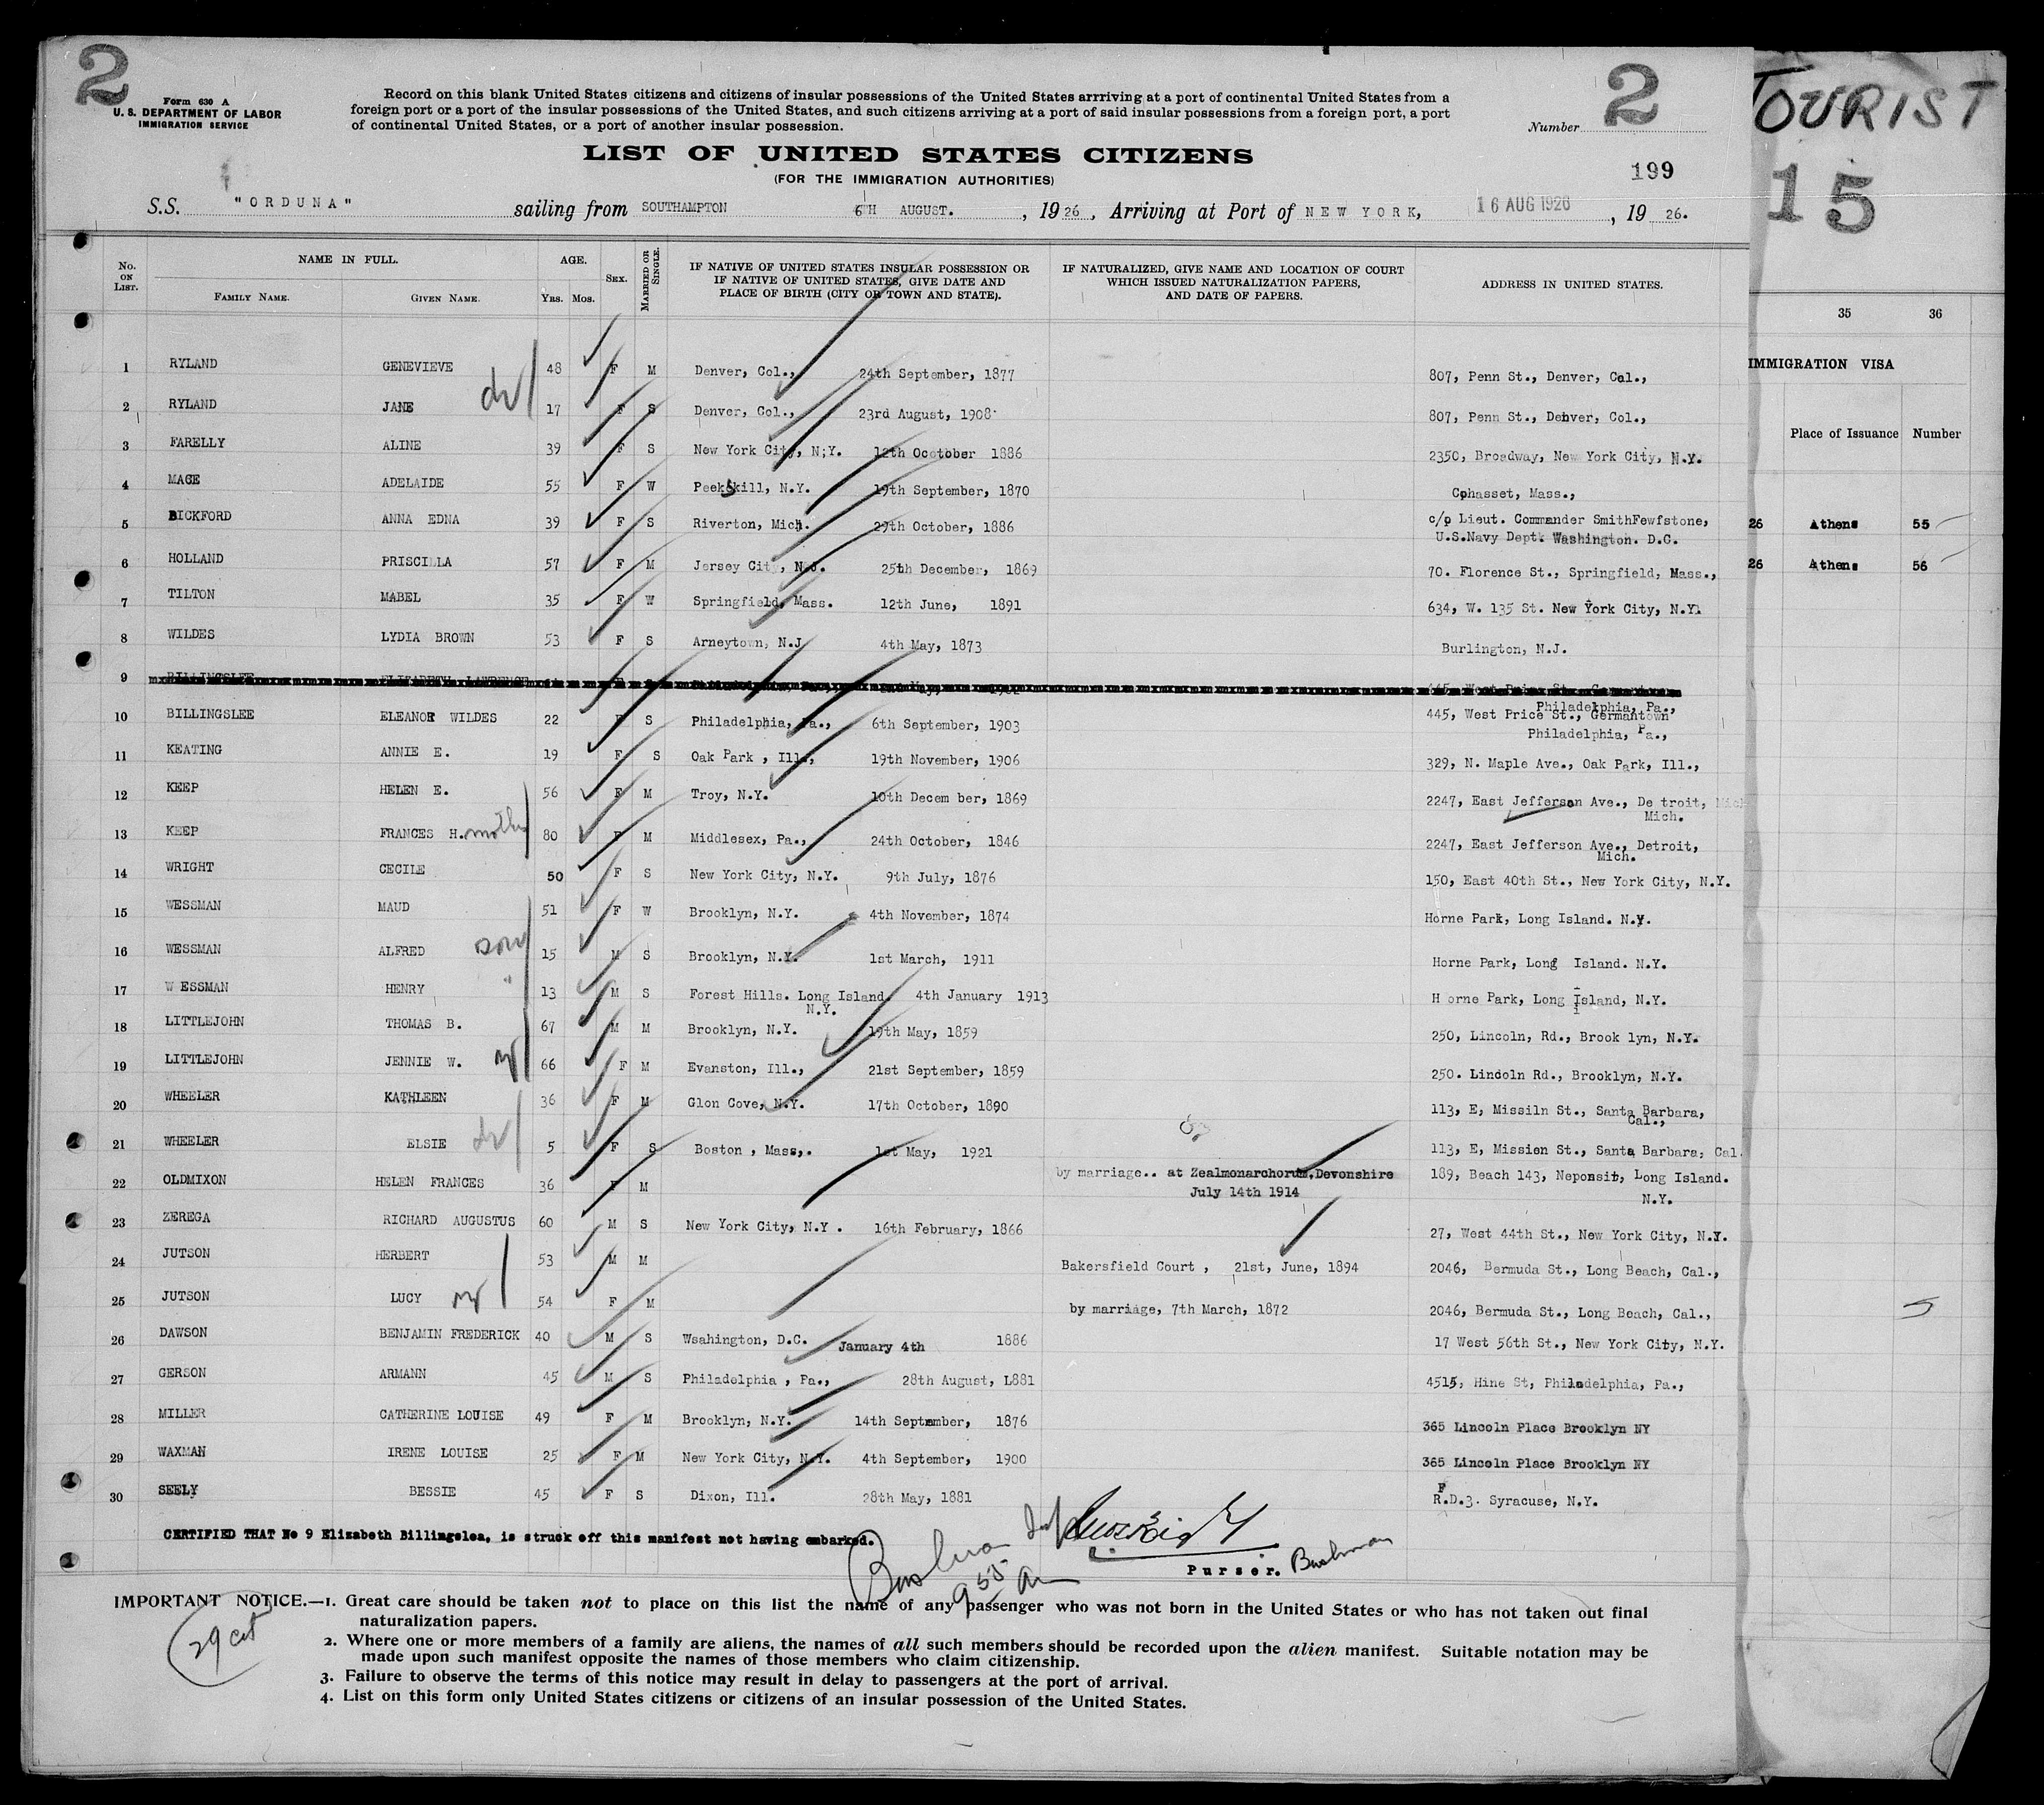 2
Form 630 A
U. S. DEPARTMENT OF LABOR
IMMIGRATION SERVICE
Record on this blank United States citizens and citizens of insular possessions of the United States arrriving at a port of continental United States from a
foreign port or a port of the insular possessions of the United States, and such citizens arriving at a port of said insular possessions from a foreign port, a port
of continental United States, or a port of another insular possession.
Number 2
LIST OF UNITED STATES CITIZENS
(FOR THE IMMIGRATION AUTHORITIES)
199
S.S. "ORDUNA" sailing from SOUTHAMPTON 6TH AUGUST. , 1926 , Arriving at Port of NEW YORK, 16 AUG 1926 , 19 26.
TOURIST
15
No. ON LIST. NAME IN FULL. AGE. SEX. MARRIED OR SINGLE. IF NATIVE OF UNITED STATES INSULAR POSSESSION OR IF NATIVE OF UNITED STATES, GIVE DATE AND PLACE OF BIRTH (CITY OR TOWN AND STATE). IF NATURALIZED, GIVE NAME AND LOCATION OF COURT WHICH ISSUED NATURALIZATION PAPERS, AND DATE OF PAPERS. ADDRESS IN UNITED STATES.
FAMILY NAME. GIVEN NAME. Yrs. Mos.
35 36
IMMIGRATION VISA
Place of Issuance Number
26 Athens 55
26 Athens 56
1 RYLAND GENEVIEVE 48 F M Denver, Col., 24th September, 1877 807, Penn St., Denver, Col.,
2 RYLAND JANE 17 F S Denver, Col., 23rd August, 1908 807, Penn St., Denver, Col.,
3 FARELLY ALINE 39 F S New York City, N;Y. 12th Ocotober 1886 2350, Broadway, New York City, N.Y.
4 MACE ADELAIDE 55 F W Peekskill, N.Y. 19th September, 1870 Cohasset, Mass.,
5 BICKFORD ANNA EDNA 39 F S Riverton, Mich. 29th October, 1886 c/o Lieut. Commander SmithFewfstone,
U.S.Navy Dept. Washington. D.C.
6 HOLLAND PRISCILLA 57 F M Jersey City, N.J. 25th December, 1869 70. Florence St., Springfield, Mass.,
7 TILTON MABEL 35 F W Springfield, Mass. 12th June, 1891 634, W. 135 St. New York City, N.Y.
8 WILDES LYDIA BROWN 53 F S Arneytown, N.J 4th May, 1873 Burlington, N.J.
9 BILLINGSLEE ELIZABETH LAWRENCE
Philadelphia, Pa.,
10 BILLINGSLEE ELEANOR WILDES 22 F S Philadelphia, Pa., 6th September, 1903 445, West Price St., Germantown
Philadelphia, Pa.,
11 KEATING ANNIE E. 19 F S Oak Park , Ill., 19th November, 1906 329, N. Maple Ave., Oak Park, Ill.,
12 KEEP HELEN E. 56 F M Troy, N.Y. 10th Decem ber, 1869 2247, East Jefferson Ave., De troit, Mich
Mich.
13 KEEP FRANCES H. mother 80 F M Middlesex, Pa., 24th October, 1846 2247, East Jefferson Ave., Detroit,
Mich.
14 WRIGHT CECILE 50 F S New York City, N.Y. 9th July, 1876 150, East 40th St., New York City, N.Y.
15 WESSMAN MAUD 51 F W Brooklyn, N.Y. 4th November, 1874 Horne Park, Long Island. N.Y.
16 WESSMAN ALFRED son 15 M S Brooklyn, N.Y. 1st March, 1911 Horne Park, Long Island. N.Y.
17 W ESSMAN HENRY " 13 M S Forest Hills. Long Island. 4th January 1913 H orne Park, Long Island, N.Y.
N.Y.
18 LITTLEJOHN THOMAS B. 67 M M Brooklyn, N.Y. 19th May, 1859 250, Lincoln, Rd., Brook lyn, N.Y.
19 LITTLEJOHN JENNIE W. 66 F M Evanston, Ill., 21st September, 1859 250. Lincoln Rd., Brooklyn, N.Y.
20 WHEELER KATHLEEN 36 F M Glon Cove, N.Y. 17th October, 1890 113, E, Missiln St., Santa Barbara,
Cal.,
21 WHEELER ELSIE 5 F S Boston , Mass,. 1st May, 1921 113, E, Mission St., Santa Barbara, Cal.
22 OLDMIXON HELEN FRANCES 36 F M by marriage.. at Zealmonarchorum,Devonshire 189, Beach 143, Neponsit, Long Island.
July 14th 1914 N.Y.
23 ZEREGA RICHARD AUGUSTUS 60 M S New York City, N.Y . 16th February, 1866 27, West 44th St., New York City, N.Y.
24 JUTSON HERBERT 53 M M Bakersfield Court , 21st, June, 1894 2046, Bermuda St., Long Beach, Cal.,
25 JUTSON LUCY 54 F M by marriage, 7th March, 1872 2046, Bermuda St., Long Beach, Cal.,
26 DAWSON BENJAMIN FREDERICK 40 M S Wsahington, D.C. January 4th 1886 17 West 56th St., New York City, N.Y.
27 GERSON ARMANN 45 M S Philadelphia , Pa., 28th August, L881 4515, Hine St, Philadelphia, Pa.,
28 MILLER CATHERINE LOUISE 49 F M Brooklyn, N.Y. 14th September, 1876 365 Lincoln Place Brooklyn NY
29 WAXMAN IRENE LOUISE 25 F M New York City, N.Y. 4th September, 1900 365 Lincoln Place Brooklyn NY
30 SEELY BESSIE 45 F S Dixon, Ill. 28th May, 1881 R.F.D.3. Syracuse, N.Y.
CERTIFIED THAT No 9 Elizabeth Billingslea, is struck off this manifest not having embarked.
Purser. Bushman
Bushman
9 55 Am
29 cit
IMPORTANT NOTICE.—1. Great care should be taken not to place on this list the name of any passenger who was not born in the United States or who has not taken out final
naturalization papers.
2. Where one or more members of a family are aliens, the names of all such members should be recorded upon the alien manifest. Suitable notation may be
made upon such manifest opposite the names of those members who claim citizenship.
3. Failure to observe the terms of this notice may result in delay to passengers at the port of arrival.
4. List on this form only United States citizens or citizens of an insular possession of the United States.